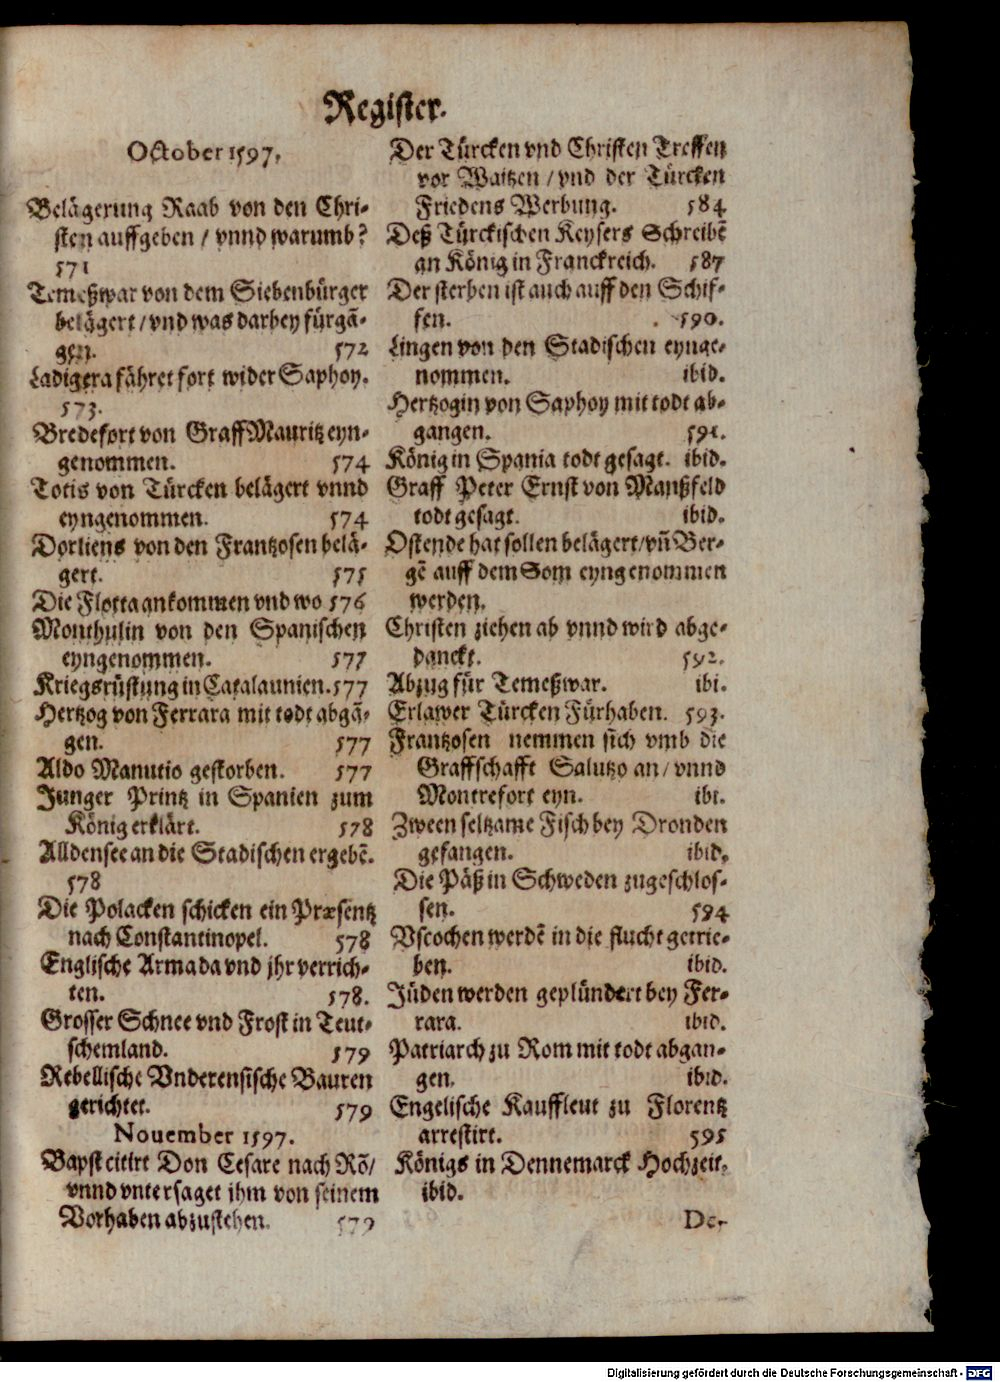 Register.
October 1597.
Belägerung Raab von den Chri-
sten auffgeben / vnnd warumb?
571
Temeßwar von dem Siebenbürger
belägert / vnd was darbey fürgā-
gen. 572
Ladigera fähret fort wider Saphoy.
573.
Bredefort von Graff Mauritz eyn-
genommen. 574
Totis von Türcken belägert vnnd
eyngenommen. 574
Dorliens von den Frantzosen belä-
gert. 575
Die Flotta ankommen vnd wo 576
Monthulin von den Spanischen
eyngenommen. 577
Kriegsrüstung in Catalaunien. 577
Hertzog von Ferrara mit todt abgā-
gen. 577
Aldo Manutio gestorben. 577
Junger Printz in Spanien zum
König erklärt. 578
Alldensee an die Stadischen ergebē.
578
Die Polacken schicken ein Præsentz
nach Constantinopel. 578
Englische Armada vnd jhr verrich-
ten. 578.
Grosser Schnee vnd Frost in Teut-
schemland. 579
Rebellische Vnderensische Bauren
gerichtet. 579
Nouember 1597.
Bapst citirt Don Cesare nach Rō/
vnnd vntersaget ihm von seinem
Vorhaben abzustehen. 579
Der Türcken vnd Christen Treffen
vor Waitzen / vnd der Türcken
Friedens Werbung. 584
Deß Türckischen Keysers Schreibē
an König in Franckreich. 587
Der sterben ist auch auff den Schif-
fen. 590.
Lingen von den Stadischen eynge-
nommen. ibid.
Hertzogin von Saphoy mit todt ab-
gangen. 591.
König in Spania todt gesagt. ibid.
Graff Peter Ernst von Manßfeld
todt gesagt. ibid.
Ostende hat sollen belägert/vn̄ Ber-
gē auff dem Som eyngenommen
werden.
Christen ziehen ab vnnd wird abge-
danckt. 592.
Abzug für Temeßwar. ibi.
Erlawer Türcken Fürhaben. 593.
Frantzosen nemmen sich vmb die
Graffschafft Salutzo an / vnnd
Montrefort eyn. ibi.
Zween seltzame Fisch bey Dronden
gefangen. ibid.
Die Päß in Schweden zugeschlos-
sen. 594
Vscochen werdē in die flucht getrie-
ben. ibid.
Jüden werden geplündert bey Fer-
rara. ibid.
Patriarch zu Rom mit todt abgan-
gen. ibid.
Engelische Kauffleut zu Florentz
arrestirt. 595
Königs in Dennemarck Hochzeit.
ibid.
Der
Digitalisierung gefördert durch die Deutsche Forschungsgemeinschaft - DFG